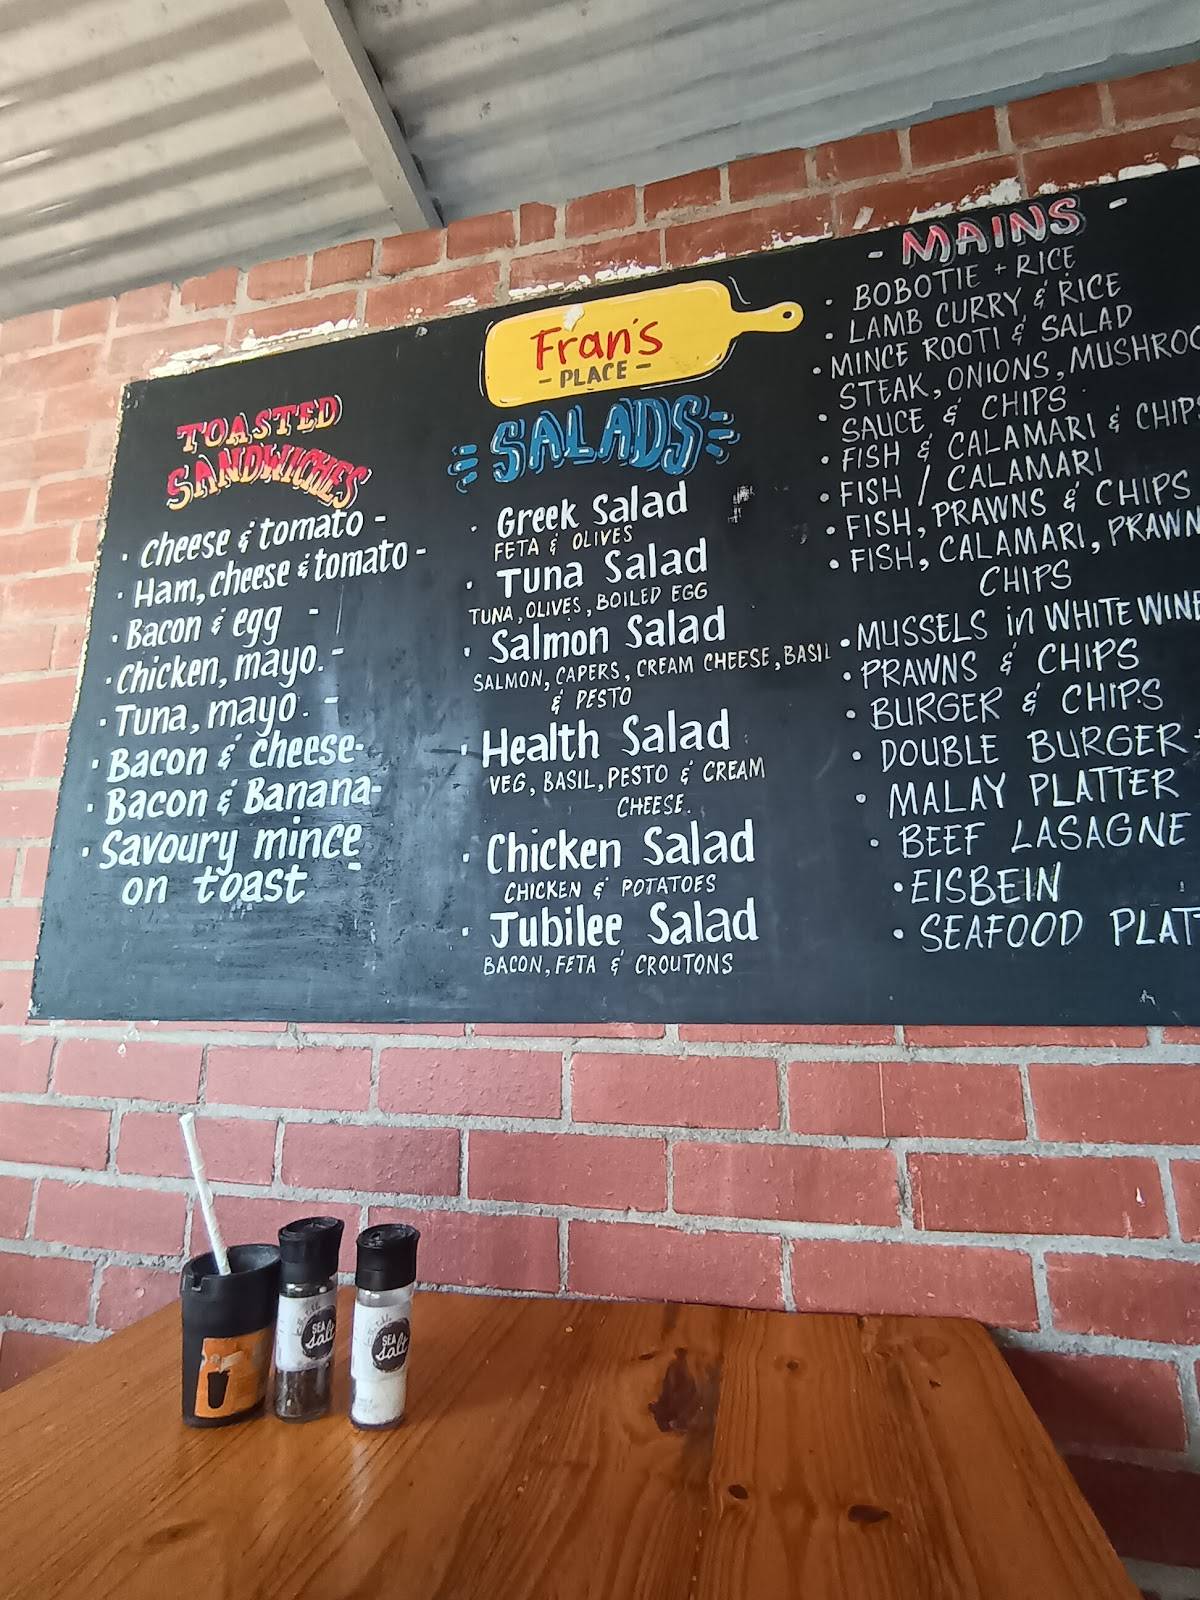 Fran's
- PLACE -
TOASTED
SANDWICHES
· Cheese & tomato -
· Ham, cheese & tomato -
· Bacon & egg -
· Chicken, mayo. -
· Tuna, mayo. -
· Bacon & cheese-
· Bacon & Banana-
· Savoury mince
on toast -
SALADS
· Greek Salad
FETA & OLIVES
· Tuna Salad
TUNA, OLIVES, BOILED EGG
· Salmon Salad
SALMON, CAPERS, CREAM CHEESE, BASIL
& PESTO
· Health Salad
VEG, BASIL, PESTO & CREAM
CHEESE.
· Chicken Salad
CHICKEN & POTATOES
· Jubilee Salad
BACON, FETA & CROUTONS
- MAINS -
· BOBOTIE + RICE
· LAMB CURRY & RICE
· MINCE ROOTI & SALAD
STEAK, ONIONS,
· SAUCE & CHIPS
· FISH & CALAMARI & CHIPS
· FISH / CALAMARI
· FISH, PRAWNS & CHIPS
· FISH, CALAMARI,
CHIPS
· MUSSELS in WHITE WINE
· PRAWNS & CHIPS
· BURGER & CHIPS
· DOUBLE BURGER
· MALAY PLATTER
· BEEF LASAGNE
· EISBEIN
· SEAFOOD
SEA
Salt
SEA
Salt